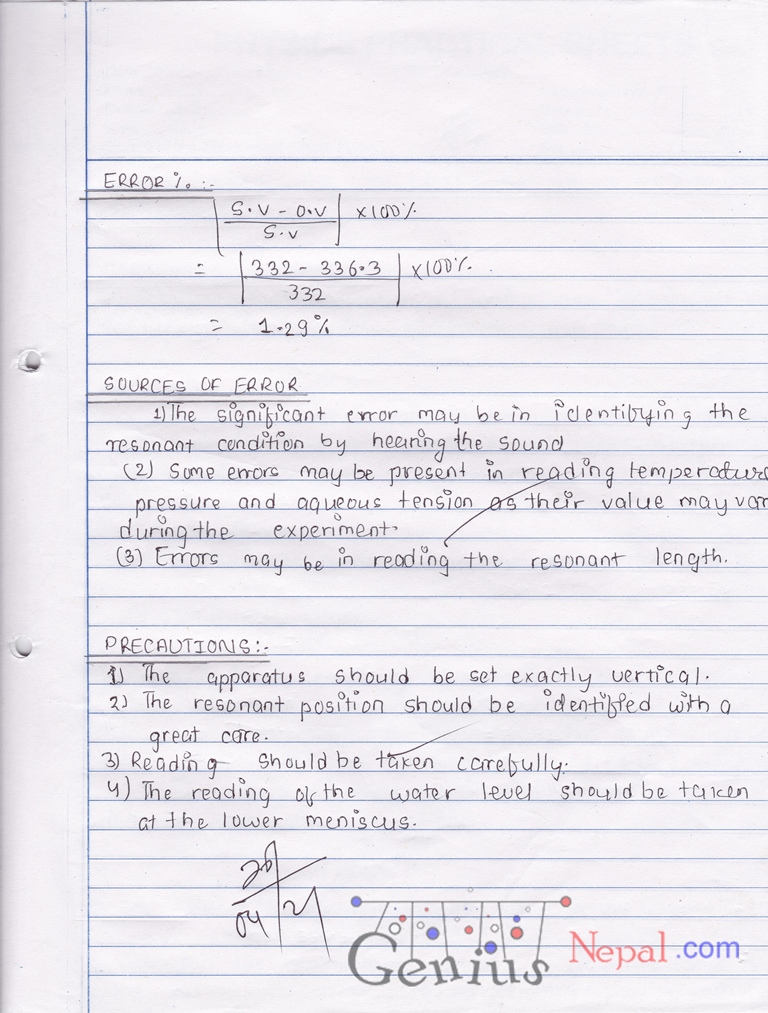 ERROR %. :-
|S.V - O.V| ×100%
S.V
= |332 - 336.3| ×100%.
332
= 1.29%
SOURCES OF ERROR
1) The significant error may be in identifying the
resonant condition by hearing the sound
(2) Some errors may be present in reading temperature
pressure and aqueous tension as their value may var
during the experiment.
(3) Errors may be in reading the resonant length.
PRECAUTIONS:-
1) The apparatus should be set exactly vertical.
2) The resonant position should be identified with a
great care.
3) Reading should be taken carefully.
4) The reading of the water level should be taken
at the lower meniscus.
04
Genius Nepal.com